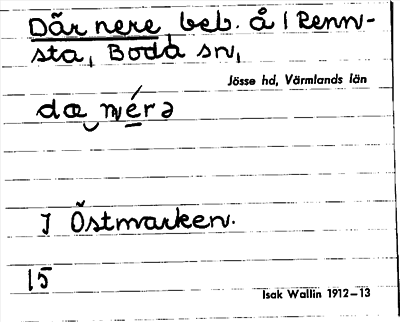 Där nere, beb. å 1 Renn-
sta, Boda sn,
Jösse hd, Värmlands län
dæ nérə
I Östmarken.
15
Isak Wallin 1912–13